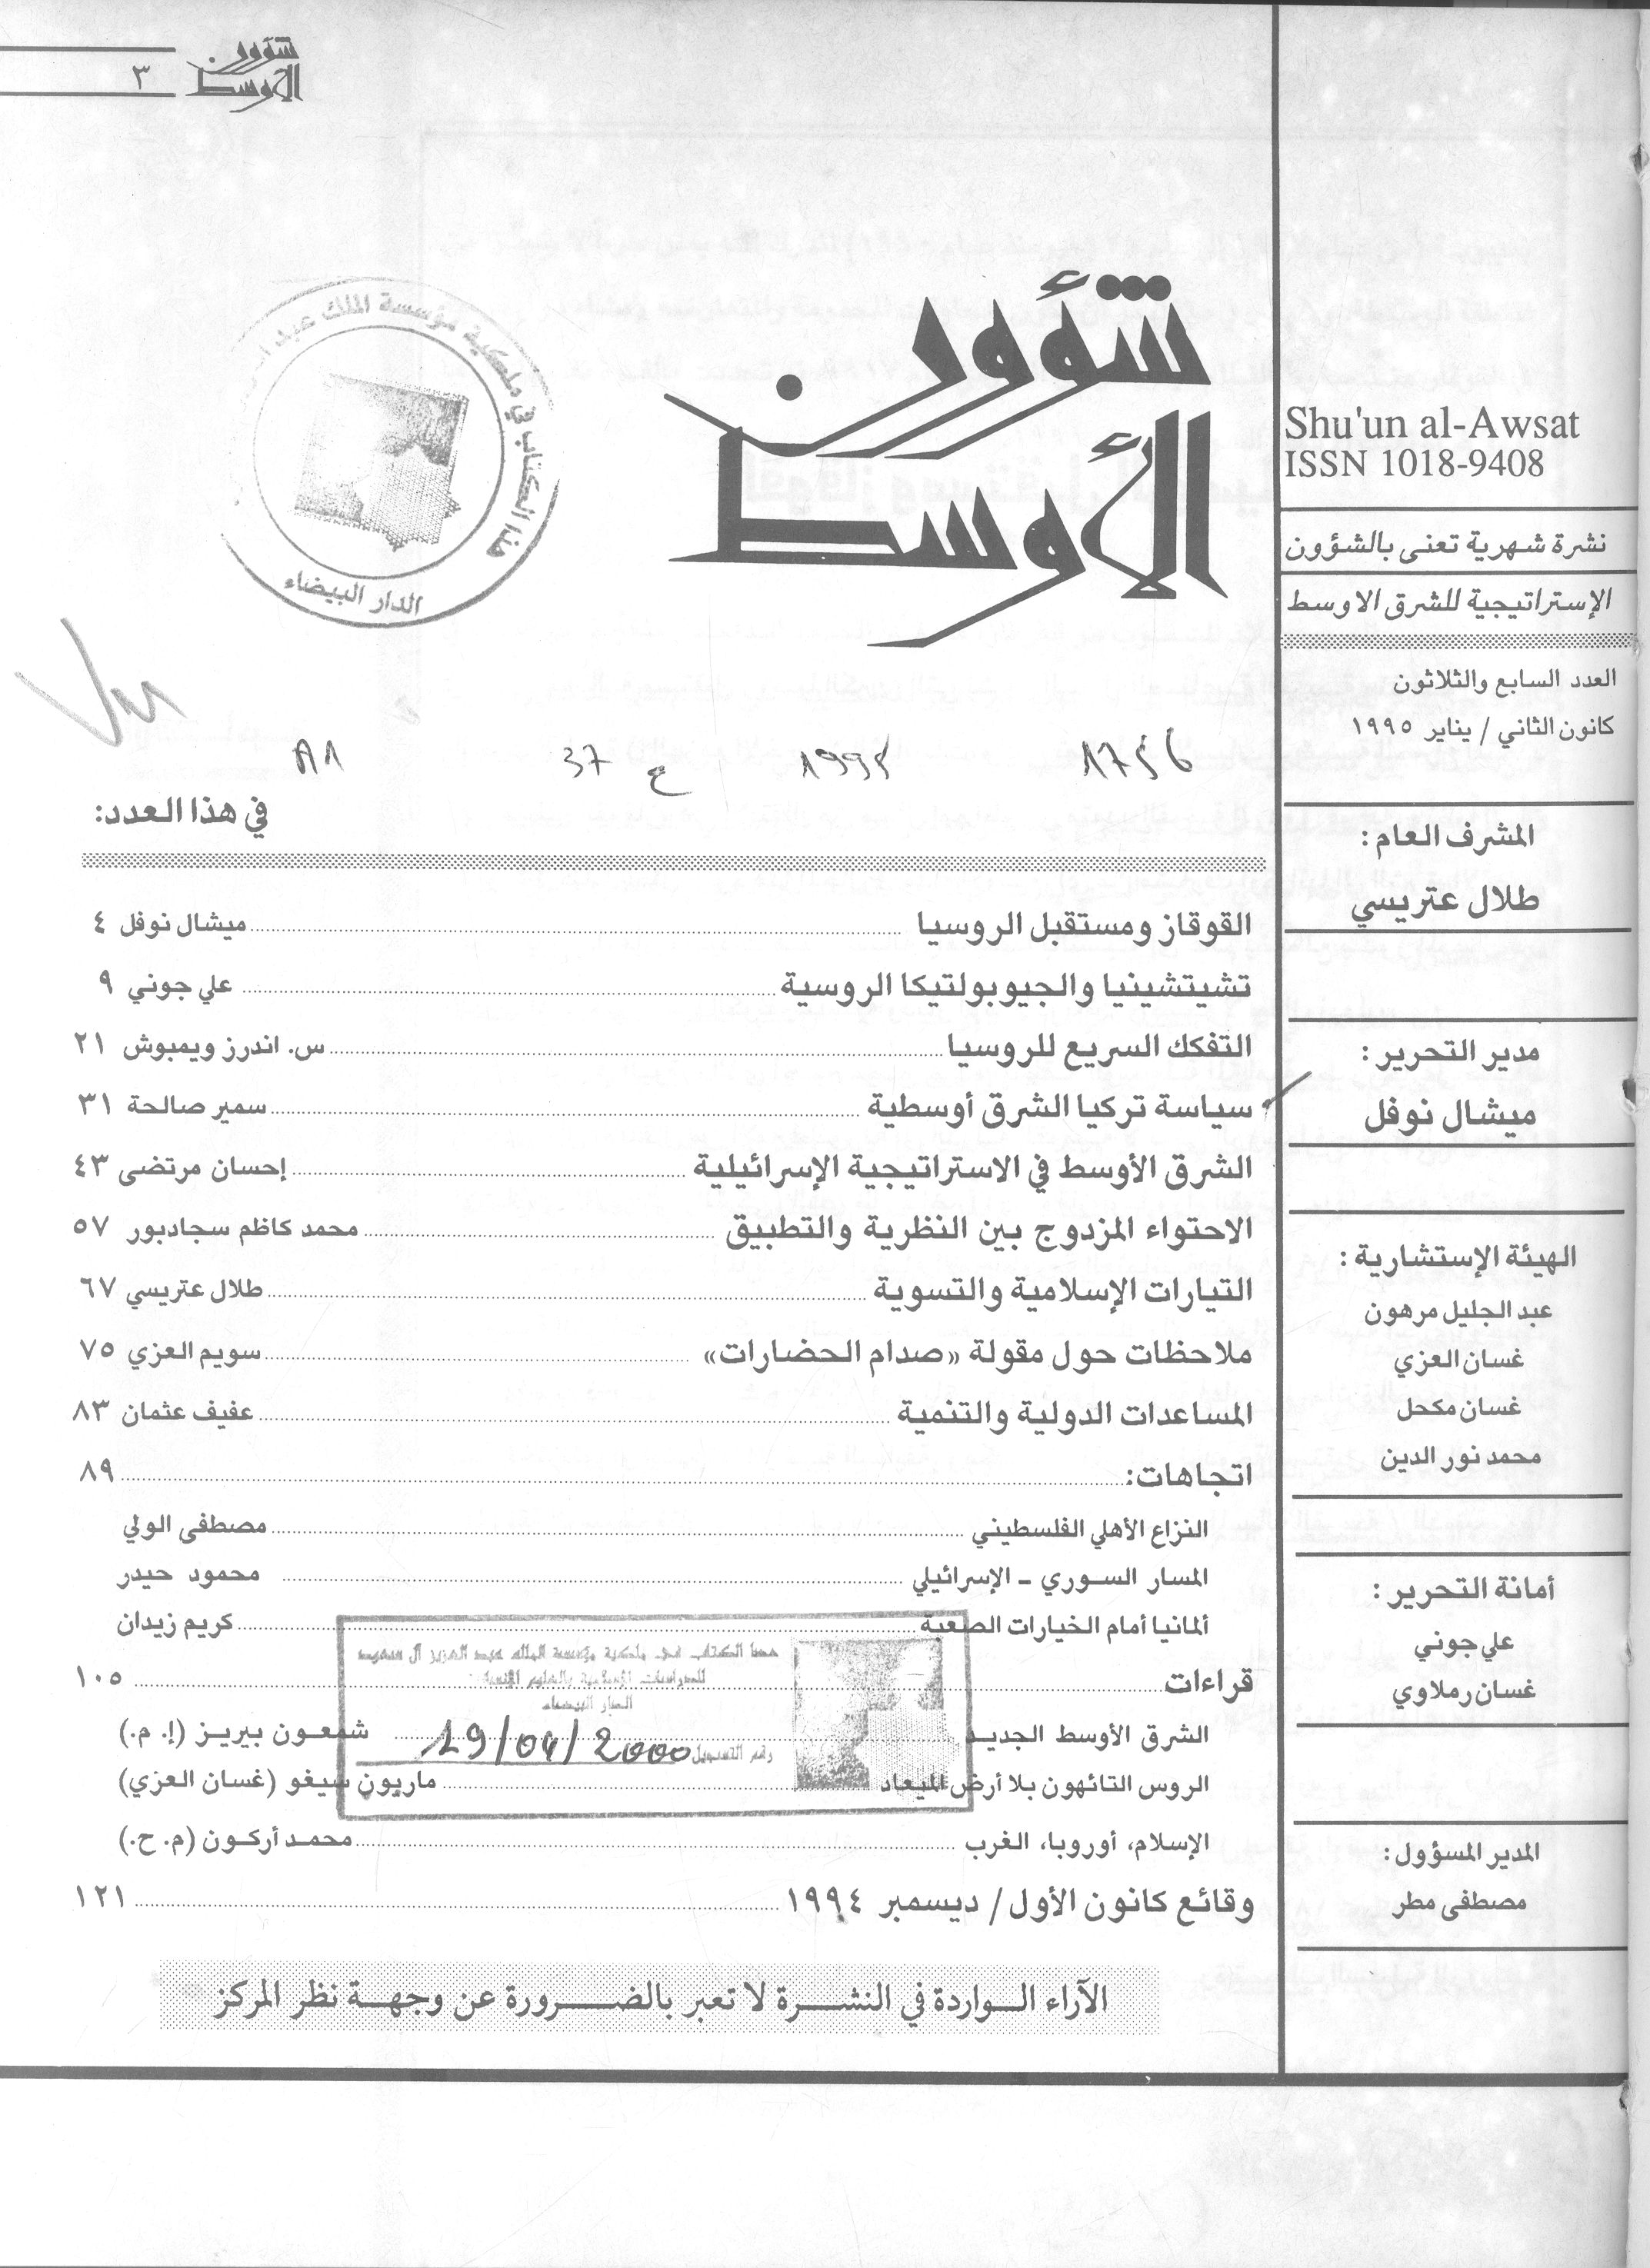 شؤون
الأوسط
٣
شؤون
الأوسط
هذا الكتاب في ملكية مؤسسة الملك عبد
الدار البيضاء
Shu'un al-Awsat
ISSN 1018-9408
نشرة شهرية تعنى بالشؤون
الإستراتيجية للشرق الاوسط
العدد السابع والثلاثون
كانون الثاني / يناير ١٩٩٥
المشرف العام :
طلال عتريسي
مدير التحرير :
ميشال نوفل
الهيئة الإستشارية :
عبد الجليل مرهون
غسان العزي
غسان مكحل
محمد نور الدين
أمانة التحرير :
علي جوني
غسان رملاوي
المدير المسؤول :
مصطفى مطر
ع 37
في هذا العدد:
القوقاز ومستقبل الروسيا ميشال نوفل ٤
تشيتشينيا والجيوبولتيكا الروسية علي جوني ٩
التفكك السريع للروسيا س. اندرز ويمبوش ٢١
سياسة تركيا الشرق أوسطية سمير صالحة ٣١
الشرق الأوسط في الاستراتيجية الإسرائيلية إحسان مرتضى ٤٣
الاحتواء المزدوج بين النظرية والتطبيق محمد كاظم سجادبور ٥٧
التيارات الإسلامية والتسوية طلال عتريسي ٦٧
ملاحظات حول مقولة «صدام الحضارات» سويم العزي ٧٥
المساعدات الدولية والتنمية عفيف عثمان ٨٣
اتجاهات: ٨٩
النزاع الأهلي الفلسطيني مصطفى الولي
المسار السوري - الإسرائيلي محمود حيدر
ألمانيا أمام الخيارات الصعبة كريم زيدان
قراءات ١٠٥
الشرق الأوسط الجديد شمعون بيريز (إ. م.)
الروس التائهون بلا أرض الميعاد ماريون سيغو (غسان العزي)
الإسلام، أوروبا، الغرب محمد أركون (م. ح.)
وقائع كانون الأول / ديسمبر ١٩٩٤ ١٢١
هذا الكتاب في ملكية مؤسسة الملك عبد العزيز آل سعود
للدراسات الإسلامية والعلوم الإنسانية
الدار البيضاء
رقم التسجيل 19/04/2000
الآراء الواردة في النشرة لا تعبر بالضرورة عن وجهة نظر المركز